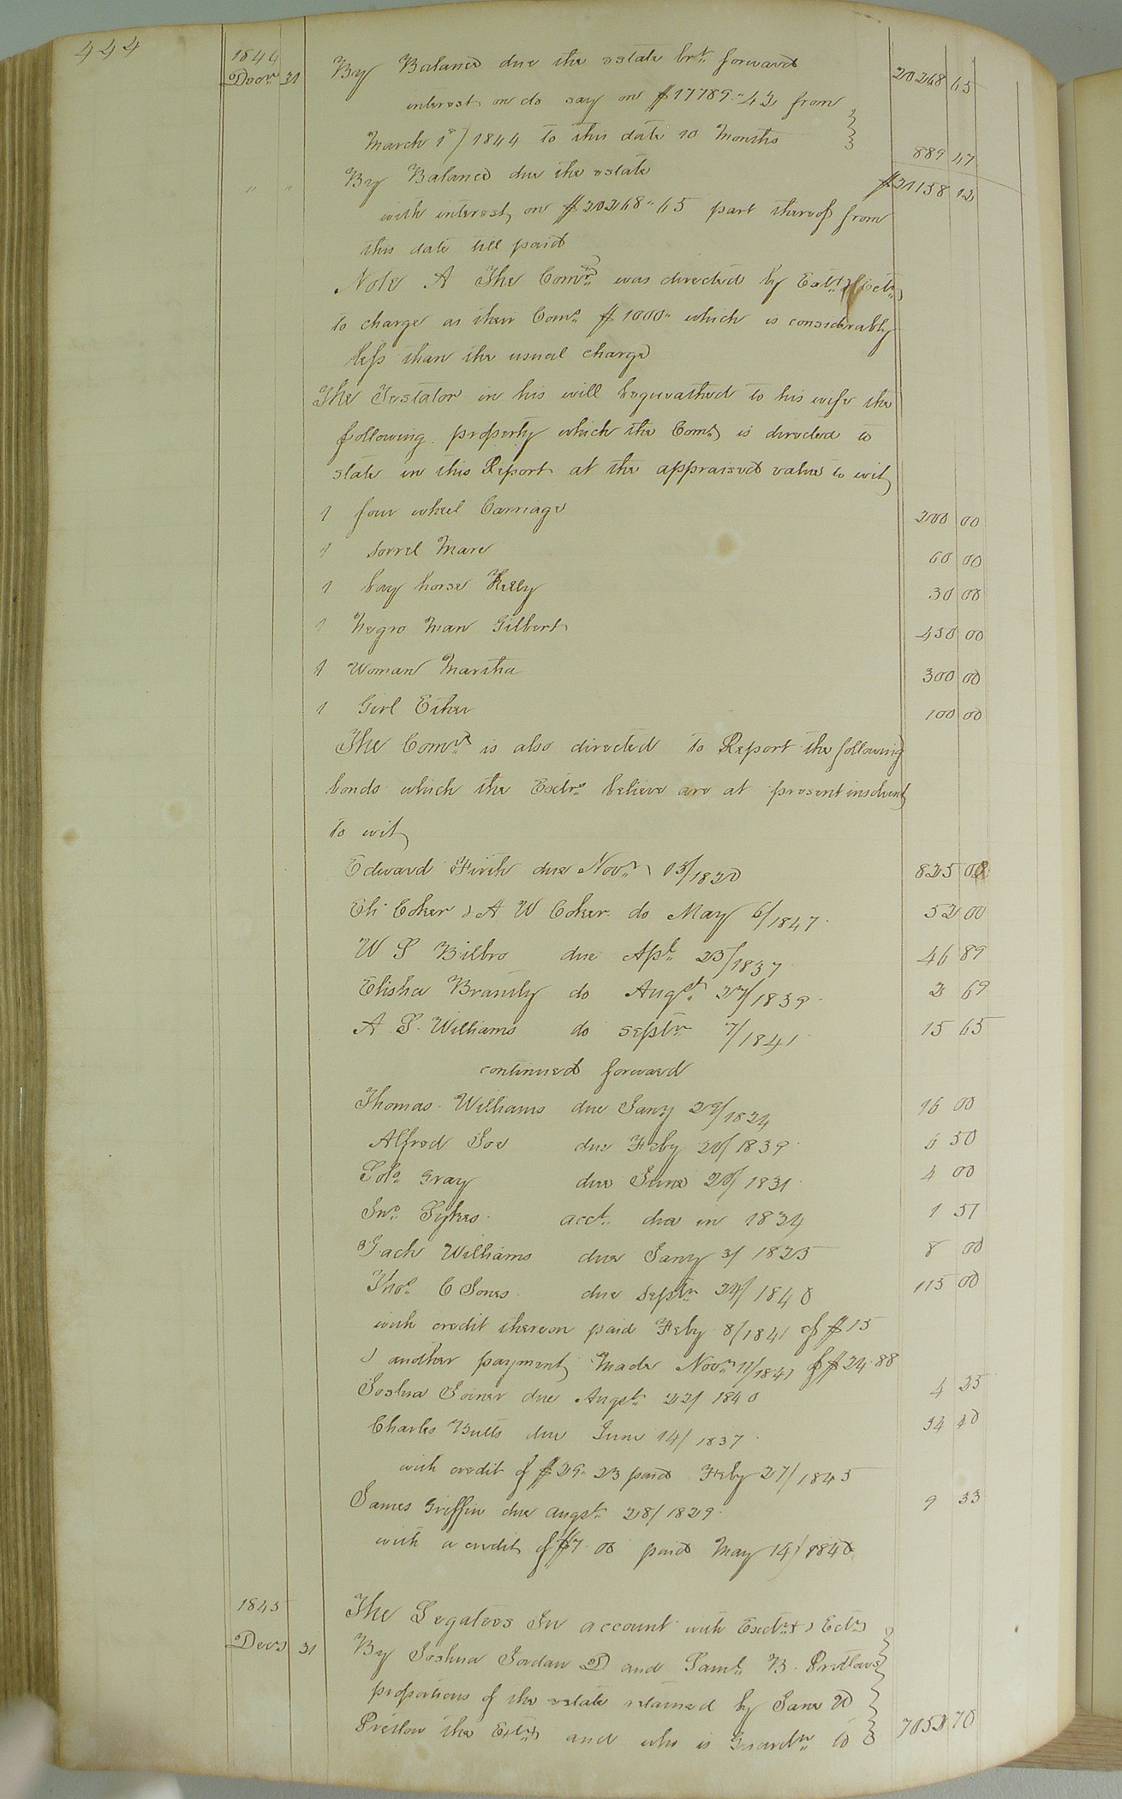 444
1844
Decr 31 By Balance due the estate brt forward 20268 65
interest on do say on $17789.43 from
March 1st/1844 to this date 10 Months 889 47
" " By Balance due the estate $21158 12
with interest on $20268.65 part thereof from
this date till paid
Note A The Comr was directed by
to charge as their Coms $1000 which is considerably
less than the usual charge
The Testator in his will bequeathed to his wife the
following property which the Comr is directed to
state in this Report at the appraised value to wit
1 four wheel Carriage 200 00
1 sorrel Mare 60 00
1 bay horse Filly 30 00
1 Negro Man Gilbert 450 00
1 Woman Martha 300 00
1 Girl Esther 100 00
The Comr is also directed to Report the following
bonds which the Exctrs believe are at present insolvent
to wit
Edward due Novr 13/1820 825 00
Eli Coker & A W Coker do May 6/1847 52 00
W S Bilbro due Apl 25/1837 46 89
Elisha Brantly do Augst 27/1839 2 69
A S Williams do septr 7/1841 15 65
continued forward
Thomas Williams due Jany 29/1824 16 00
Alfred due Feby 20/1839 6 50
Solo Gray due June 20/1831 4 00
Jno Sykes acct due in 1834 1 57
Zach Williams due Jany 3/1825 8 00
Thos C Jones due Septr 24/1840 115 00
with credit thereon paid Feby 8/1841 of $15
& another payment made Novr 11/1841 of $24.88
Joshua Joiner due Augst 22/1840 4 25
Charles Butts due June 14/1837 34 40
with credit of $29.23 paid Feby 27/1845
James Griffin due augst 28/1829 9 33
with a credit of $7.00 paid May 14/1840
1845
Decr 31 The Legatees In account with
By Joshua Jordan D and Saml B. Pretlows
proportions of the estate retained by Jane D
Pretlow the and who is Guardn to 7052 70